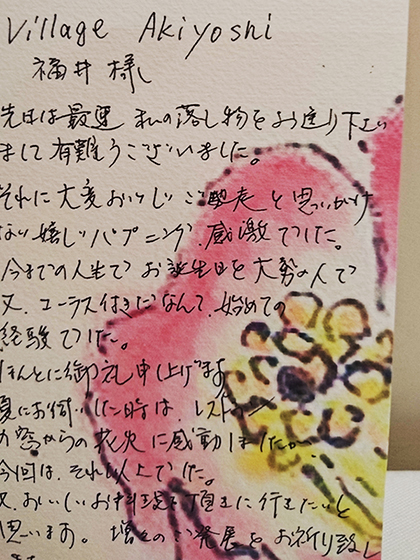 Village Akiyoshi
福井 様
先日は最更 私の落し物をお送り下さい
まして有難うございました。
それに大変おいしいご馳走と思いがけ
ない嬉しいハプニング、感激でした。
今までの人生でお誕生日を大勢の人で
又、コーラス付きだなんて、始めての
経験でした。
ほんとに御礼申し上げます
夏にお伺いした時は、レストラン
の窓からの花火に感動しましたが、
今回は、それ以上でした。
又、おいしいお料理を頂きに行きたいと
思います。増々のご発展をお祈り致し
ます